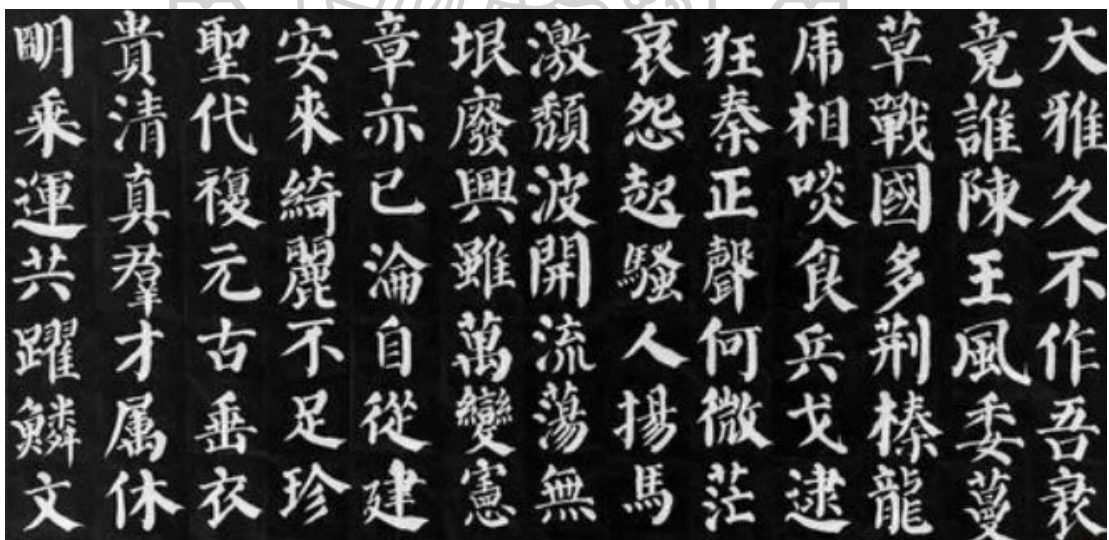 大雅久不作吾衰
竟誰陳王風委蔓
草戰國多荆榛龍
虎相啖食兵戈逮
狂秦正聲何微茫
哀怨起騷人揚馬
激頽波開流蕩無
垠廢興雖萬變憲
章亦已淪自從建
安來綺麗不足珍
聖代複元古垂衣
貴清真羣才属休
明乘運共躍鱗文